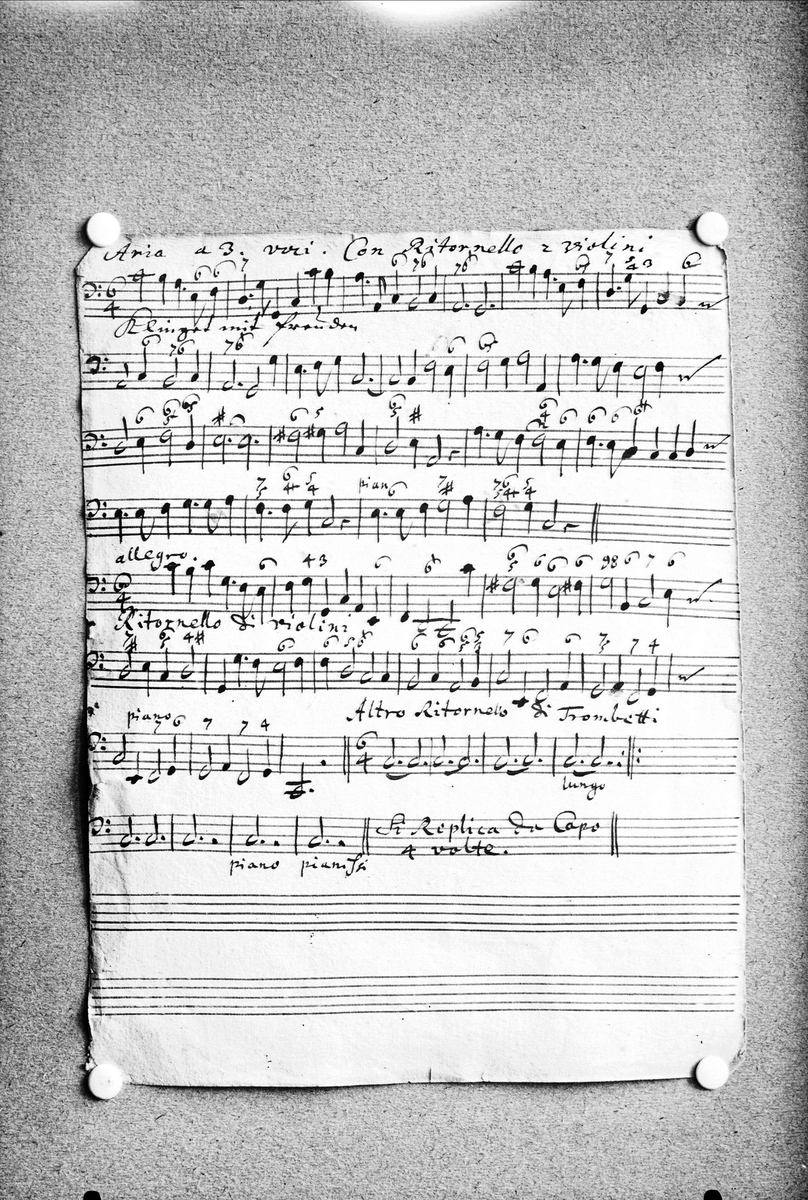 Aria a 3. voci. Con Ritornello 2 violini
Klinget mit freuden
piano
allegro.
Ritornello di violini
piano
Altro Ritornello di Trombetti
lungo
Si Replica da Capo
4 volte.
piano pianissi